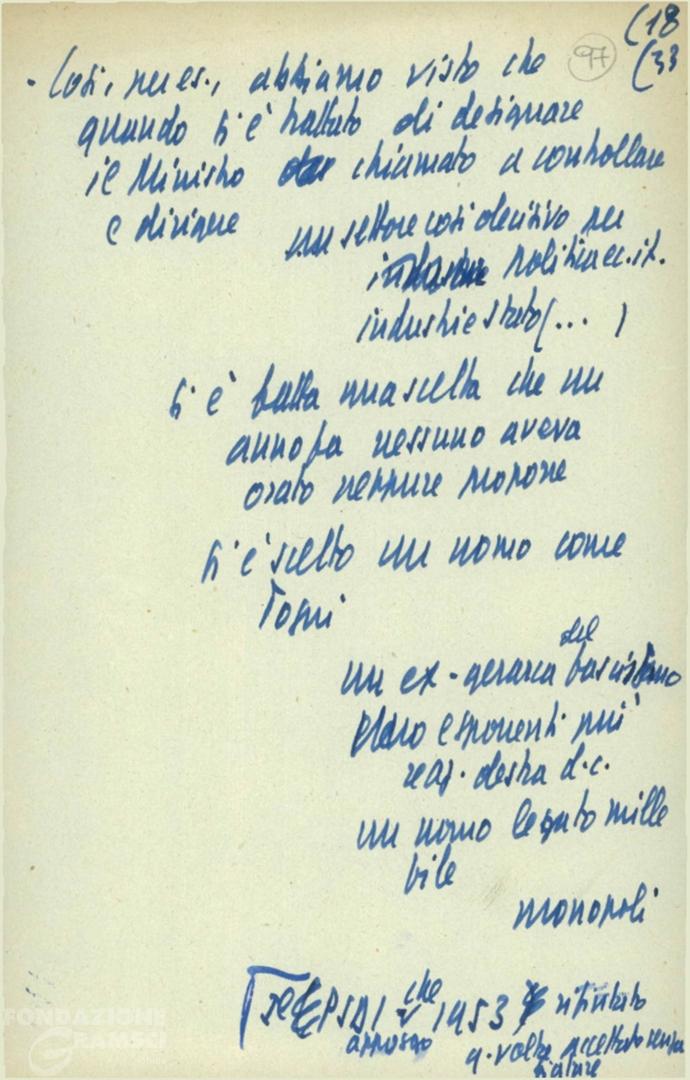 (18
97 (33
- Così, per es., abbiamo visto che
quando si è trattato di designare
il Ministro chiamato a controllare
e dirigere
un settore così decisivo per
politica ec. it.
industrie stato (... )
si è fatta una scelta che un
anno fa nessuno aveva
osato neppure proporre
si è scelto un uomo come
Togni
un ex-gerarca del fascismo
esponenti più
reaz. destra d.c.
un uomo legato mille
file
monopoli
se PSDI che 1953 rifiutato
appoggio q. volta accettato senza
fiatare
FONDAZIONE
GRAMSCI